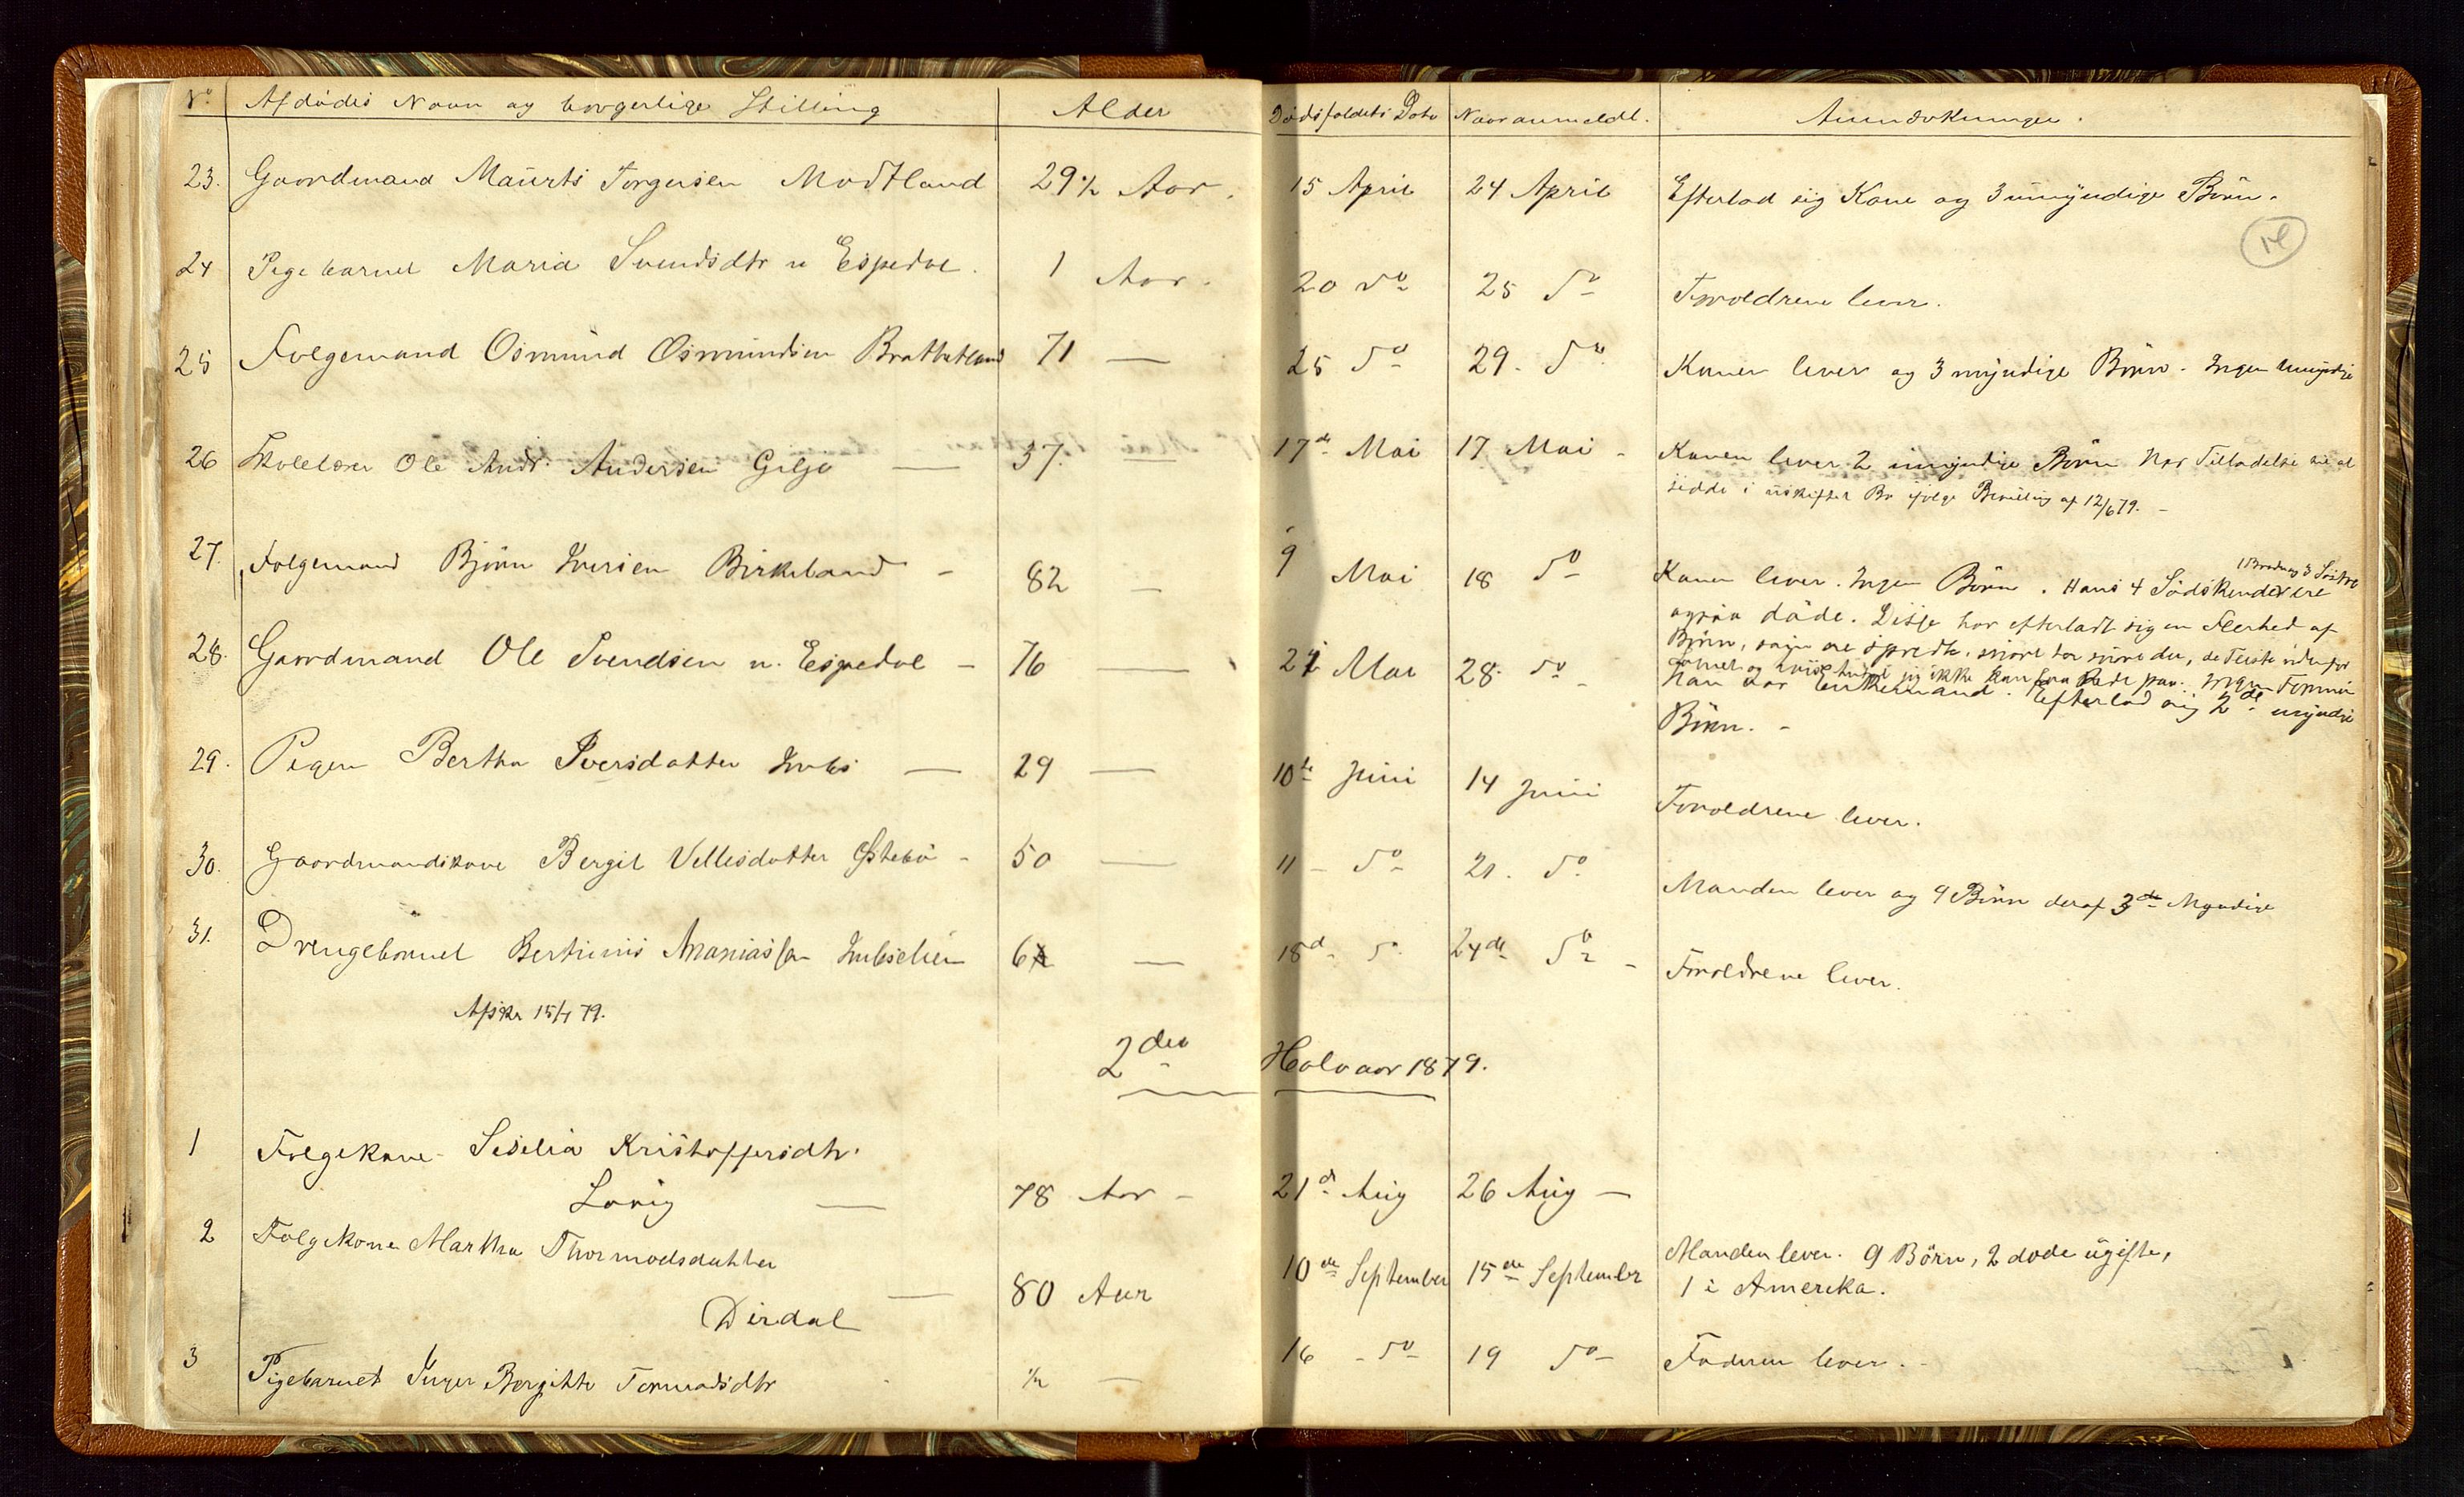 No Afdødes Navn og borgerlige Stilling Alder Dødsfaldets Dato Naar anmeldt. Anmærkninger.
23. Gaardmand Maurits Torgersen Modtland 29½ Aar. 15 April 24 April Efterlod sig Kone og 3 umyndige Børn.
24 Pigebarnet Maria Svendsdtr n Espedal. 1 Aar. 20 do 25 do Forældrene lever.
25 Folgemand Osmund Osmundsen Brattetland 71 — 25 do 29. do Konen lever og 3 myndige Børn. Ingen umyndige
26 Skolelærer Ole Andr. Andersen Gilje — 37. — 17de Mai 17 Mai - Konen lever 2 umyndige Børn Har Tilladelse til at
sidde i uskiftet Bo ifølge Bevilling af 12/6 79. -
1 Broder og 3 Søstre
27. Folgemand Bjørn Iversen Birkeland - 82 — 9 Mai 18 do Konen lever. Ingen Børn. Hans 4 Södskende ere
ogsaa døde. Disse har efterladt sig en Fleerhed af
Børn, som ere spredte,
28. Gaardmand Ole Svendsen n. Espedal - 76 — 27 Mai 28. do - Han var Enkemand. Efterlod sig 2de myndige
Börn. -
29. Pigen Bertha Iversdatter — 29 — 10de Juni 14 Juni Forældrene lever.
30. Gaardmandskone Bergit Vellesdatter Østebø - 50 — 11 - do 21. do Manden lever og 9 Börn deraf 3de Myndige
31. Drengebarnet Bertinius Ananiassen 6 — 18de do 24de do - Forældrene lever.
Afskr 15/7 79.
2det Halvaar 1879.
1 Folgekone Sesilia Kristoffersdtr.
Lavig — 78 Aar - 21de Aug 26 Aug —
2 Folgekone Martha Thormodsdatter
Dirdal — 80 Aar 10de September 15de September Manden lever. 9 Børn, 2 døde ugifte,
1 i Amerika.
3 Pigebarnet Inger Bergitte Tormodsdtr ½ — 16 - do 19 do Faderen lever. -